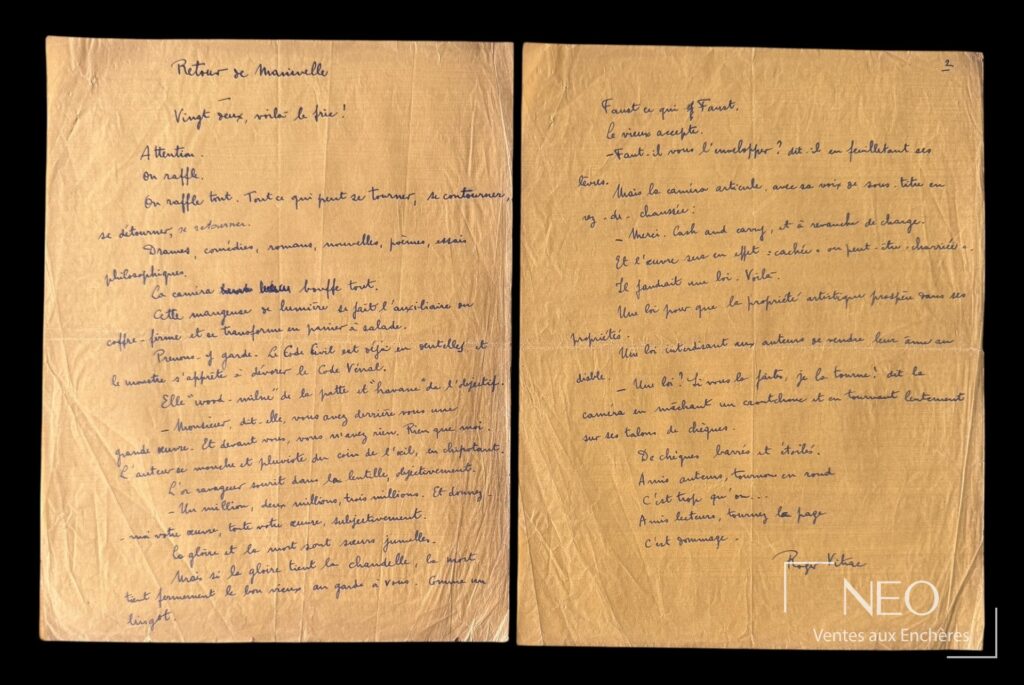 Retour de Manivelle
Vingt deux, voilà le fric !
Attention.
On raffle.
On raffle tout. Tout ce qui peut se tourner, se contourner,
se détourner, se retourner.
Drames, comédies, romans, nouvelles, poèmes, essais
philosophiques.
La caméra bouffe tout.
Cette mangeuse de lumière se fait l'auxiliaire du
coffre-ferme et se transforme en panier à salade.
Prenons-y garde. Le Code Civil est déjà en dentelles et
le monstre s'apprête à dévorer le Code Vénal.
Elle "wood-milne" de la patte et "havane" de l'objectif.
- Monsieur, dit-elle, vous avez derrière vous une
grande œuvre. Et devant vous, vous n'avez rien. Rien que moi.
L'auteur se mouche et pluviote du coin de l'œil, en chipotant.
L'or ravageur sourit dans la lentille, objectivement.
- Un million, deux millions, trois millions. Et donnez-
-moi votre œuvre, toute votre œuvre, subjectivement.
La gloire et la mort sont sœurs jumelles.
Mais si la gloire tient la chandelle, la mort
tient fermement le bon vieux au garde à vous. Comme un
lingot.
2
Faust ce qui Faust.
Le vieux accepte.
- Faut-il vous l'envelopper ? dit-il en feuilletant ses
lèvres.
Mais la caméra articule, avec sa voix de sous-titre en
rez-de-chaussée :
- Merci. Cash and carry, et à revanche de charge.
Et l'œuvre sera en effet "cachée" ou peut-être "charriée".
Il faudrait une loi. Voilà.
Une loi pour que la propriété artistique prospère dans ses
propriétés.
Une loi interdisant aux auteurs de vendre leur âme au
diable.
- Une loi ? Si vous la faites, je la tourne ! dit la
caméra en mâchant un caoutchouc et en tournant lentement
sur ses talons de chèques.
De chèques barrés et étoilés.
Amis auteurs, tournons en rond
C'est trop qu'on...
Amis lecteurs, tournez la page
C'est dommage.
Roger Vitrac
NEO
Ventes aux Enchères